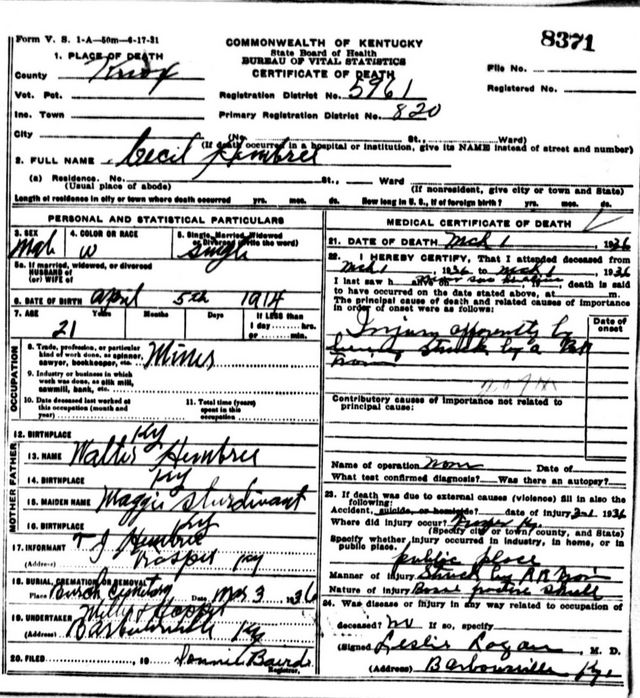 Form V. S. 1-A—50m—6-17-31
COMMONWEALTH OF KENTUCKY
State Board of Health
BUREAU OF VITAL STATISTICS
CERTIFICATE OF DEATH
8371
1. PLACE OF DEATH
County Knox
File No.
Registration District No. 5961
Registered No.
Vot. Pct.
Inc. Town
Primary Registration District No. 820
City (No. St., Ward)
(If death occurred in a hospital or institution, give its NAME instead of street and number)
2. FULL NAME Cecil Hembree
(a) Residence. No. St., Ward
(Usual place of abode) (If nonresident, give city or town and State)
Length of residence in city or town where death occurred yrs. mos. ds. How long in U. S., if of foreign birth? yrs. mos. ds.
PERSONAL AND STATISTICAL PARTICULARS
3. SEX 4. COLOR OR RACE 5. Single, Married, Widowed
or Divorced (write the word)
W Single
5a. If married, widowed, or divorced
HUSBAND of
(or) WIFE of
6. DATE OF BIRTH April 5th 1914
7. AGE Years Months Days If LESS than
1 day hrs.
or min.
21
OCCUPATION
8. Trade, profession, or particular
kind of work done, as spinner,
sawyer, bookkeeper, etc.
9. Industry or business in which
work was done, as silk mill,
sawmill, bank, etc.
10. Date deceased last worked at
this occupation (month and
year)
11. Total time (years)
spent in this
occupation
12. BIRTHPLACE Ky
FATHER
13. NAME Walter Hembree
14. BIRTHPLACE Ky
MOTHER
15. MAIDEN NAME Maggie Sturdivant
16. BIRTHPLACE Ky
17. INFORMANT T J Hembree
(Address) Ky
18. BURIAL, CREMATION OR REMOVAL
Place Cemetery Date Mar 3, 1936
19. UNDERTAKER
(Address) Barbourville Ky
20. FILED , 19 Baird
Registrar.
MEDICAL CERTIFICATE OF DEATH
21. DATE OF DEATH Mch 1, 1936
22. I HEREBY CERTIFY, That I attended deceased from
Mch 1, 1936 to Mch 1, 1936
I last saw h alive on death is said
to have occurred on the date stated above, at m.
The principal cause of death and related causes of importance
in order of onset were as follows:
Date of
onset
Injury apparently by
being struck by a RR
Contributory causes of importance not related to
principal cause:
Name of operation None Date of
What test confirmed diagnosis? Was there an autopsy?
23. If death was due to external causes (violence) fill in also the
following:
Accident, suicide, or homicide? date of injury 3-1 1936
Where did injury occur? Ky.
(Specify city or town, county, and State)
Specify whether injury occurred in industry, in home, or in
public place.
public place
Manner of injury Struck by RR
Nature of injury skull
24. Was disease or injury in any way related to occupation of
deceased? No If so, specify
(Signed) Leslie Logan, M. D.
(Address) Barbourville Ky.